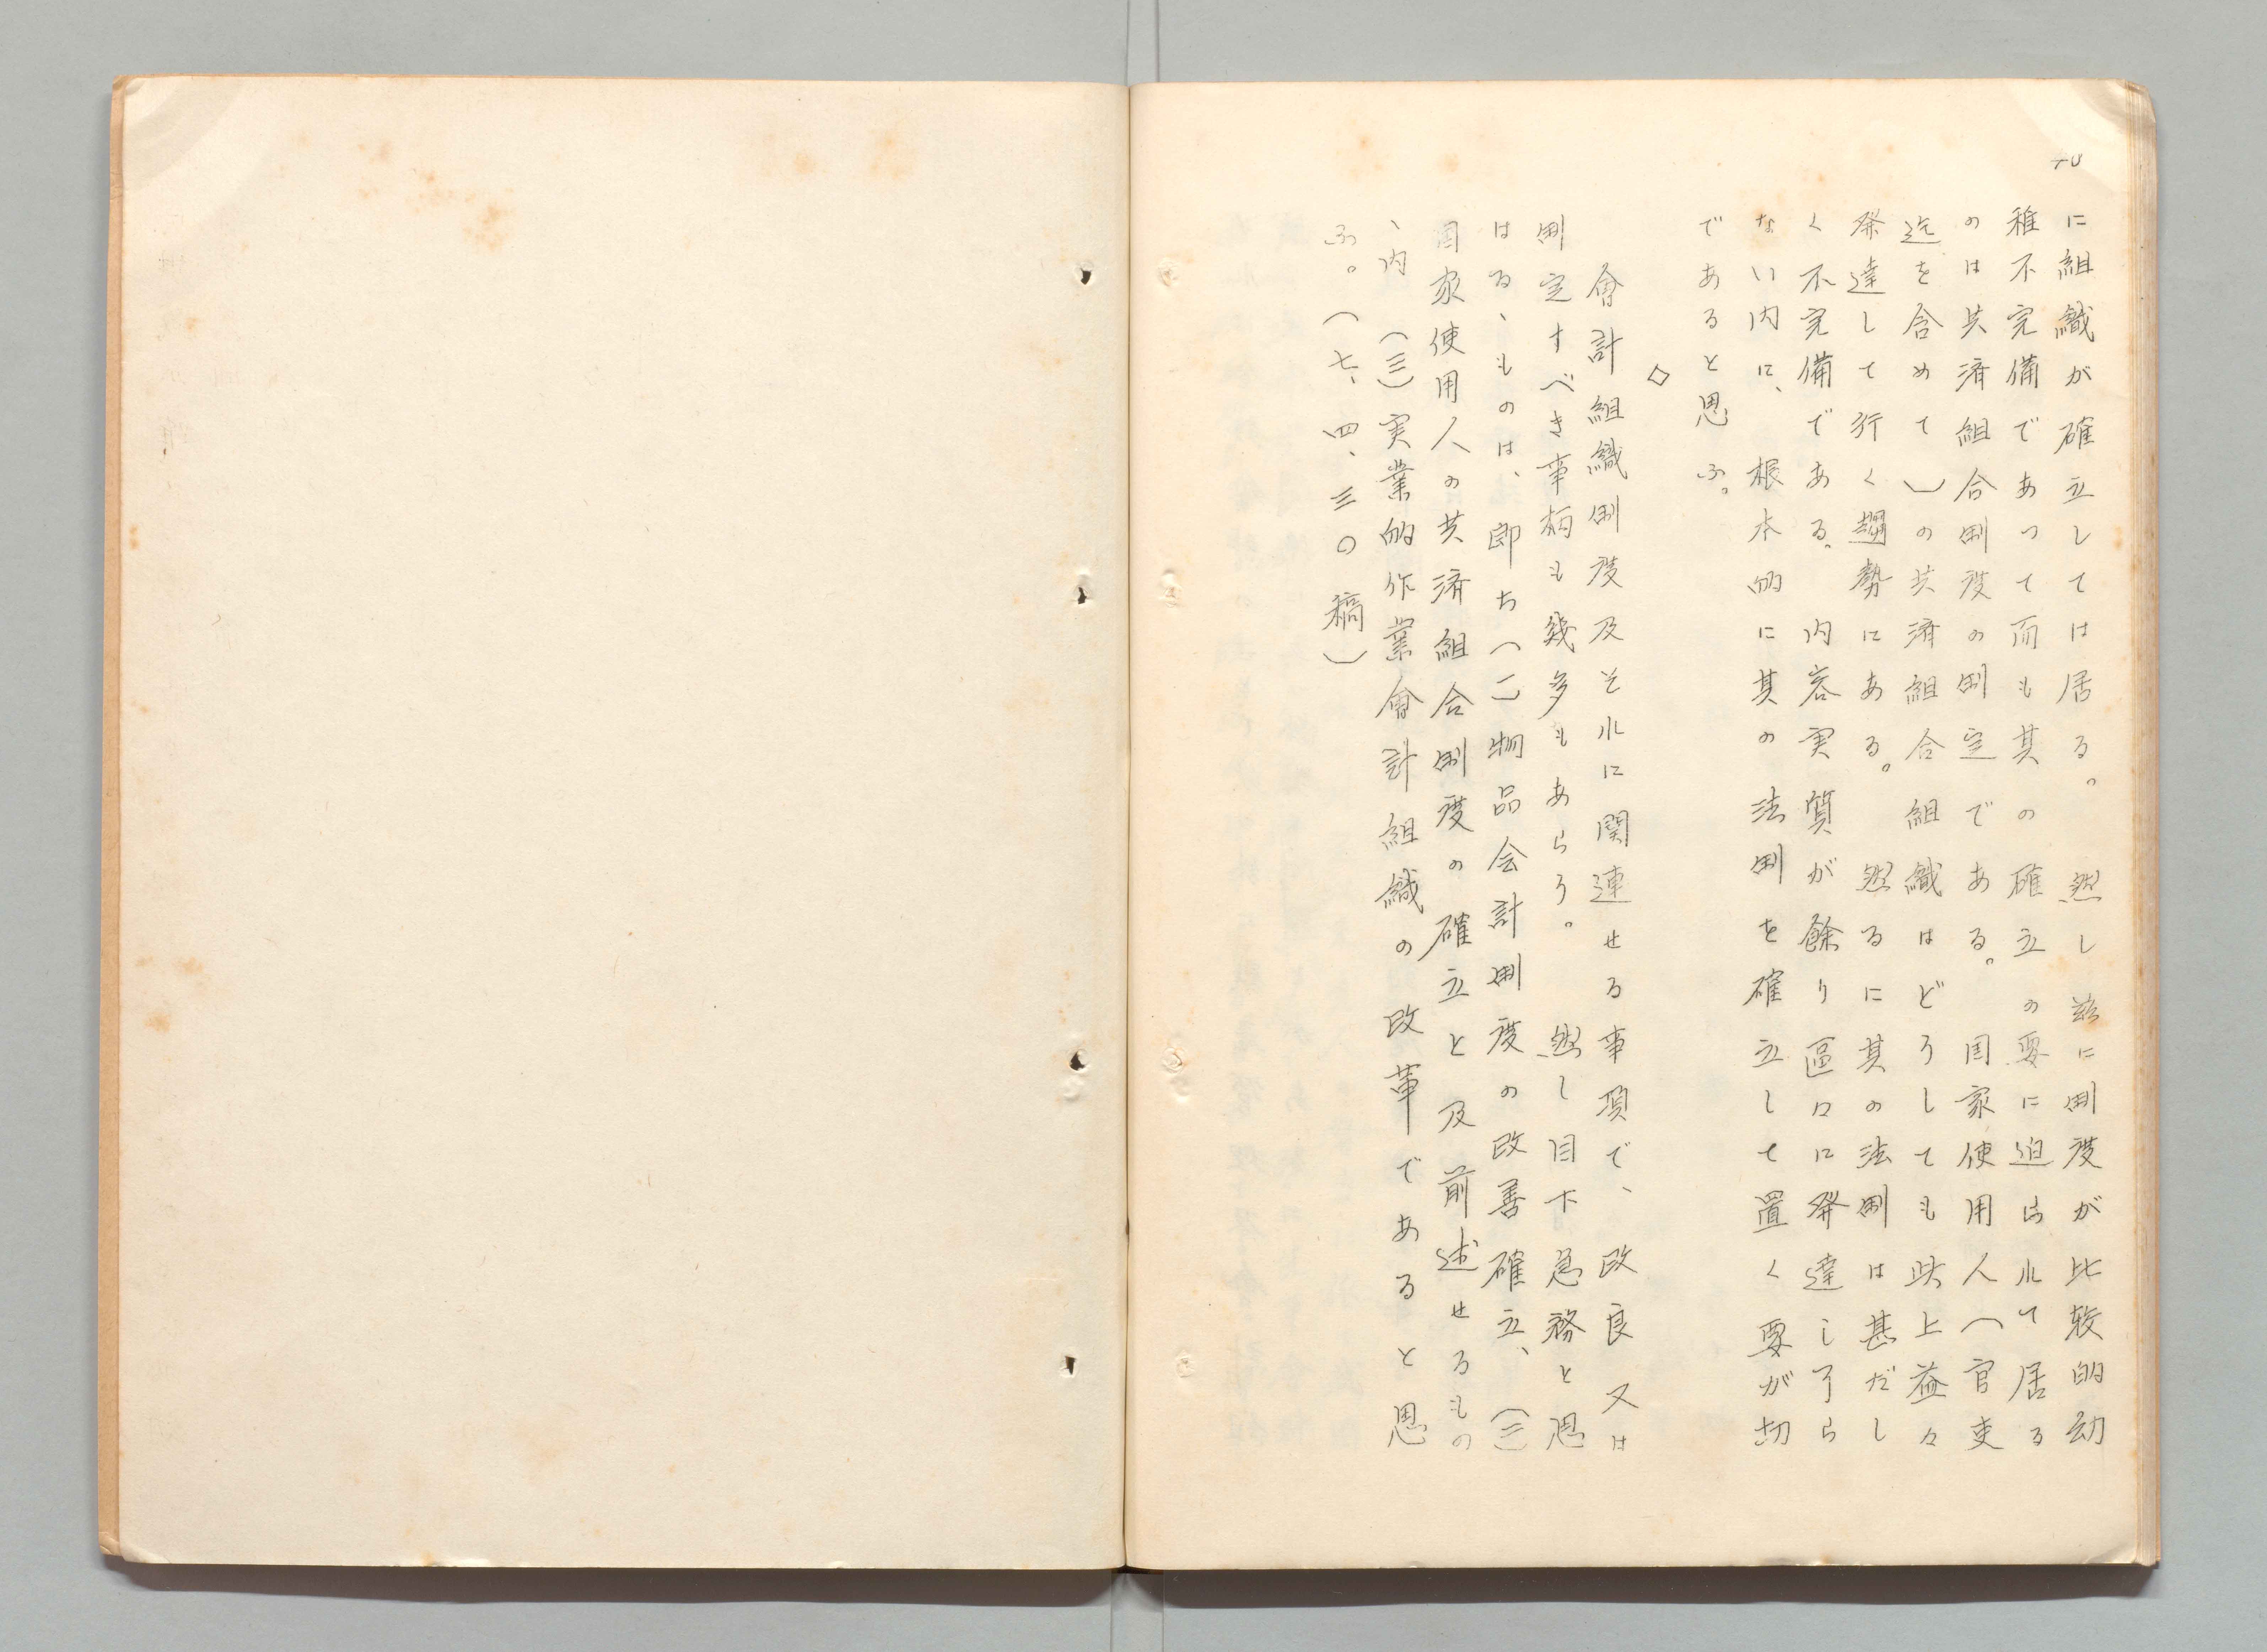 に組織が確立しては居る。然し茲に制度が比較的幼
稚不完備であつて而も其の確立の要に迫られて居る
のは共済組合制度の制定である。国家使用人（官吏
迄を含めて）の共済組合組織はどうしても此上益々
発達して行く趨勢にある。然るに其の法制は甚だし
く不完備である。内容実質が餘り區口に発達し了ら
ない内に、根本的に其の法制を確立して置く要が切
であると思ふ。
◇
會計組織制度及それに関連せる事項で、改良又は
制定すべき事柄も幾多もあらう。然し目下急務と思
はる、ものは、即ち（一）物品会計制度の改善確立、（二）
国家使用人の共済組合制度の確立と及前述せるもの
、内（三）実業的作業會計組織の改革であると思
ふ。（七、四、三〇稿）